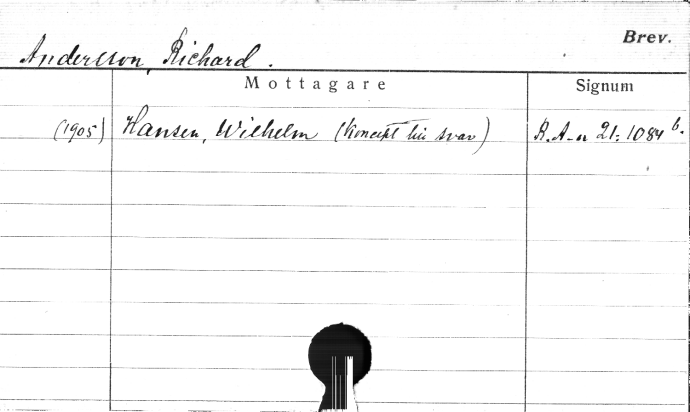 Brev.
Andersson, Richard.
Mottagare Signum
(1905) Hansen, Wilhelm (Koncept till svar) R.A-n 21:1084 b.